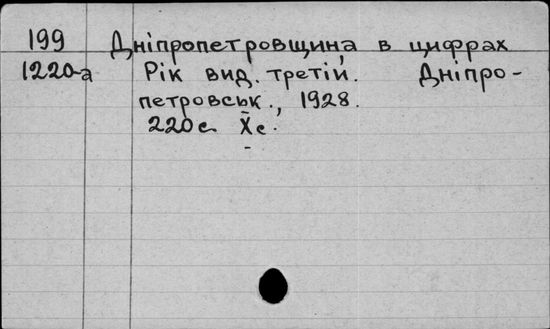 199 Дніпропетровщина в цифрах
1220-а Рік вид. третій. Дніпро-
петровськ., 1928.
220с. X̄с.